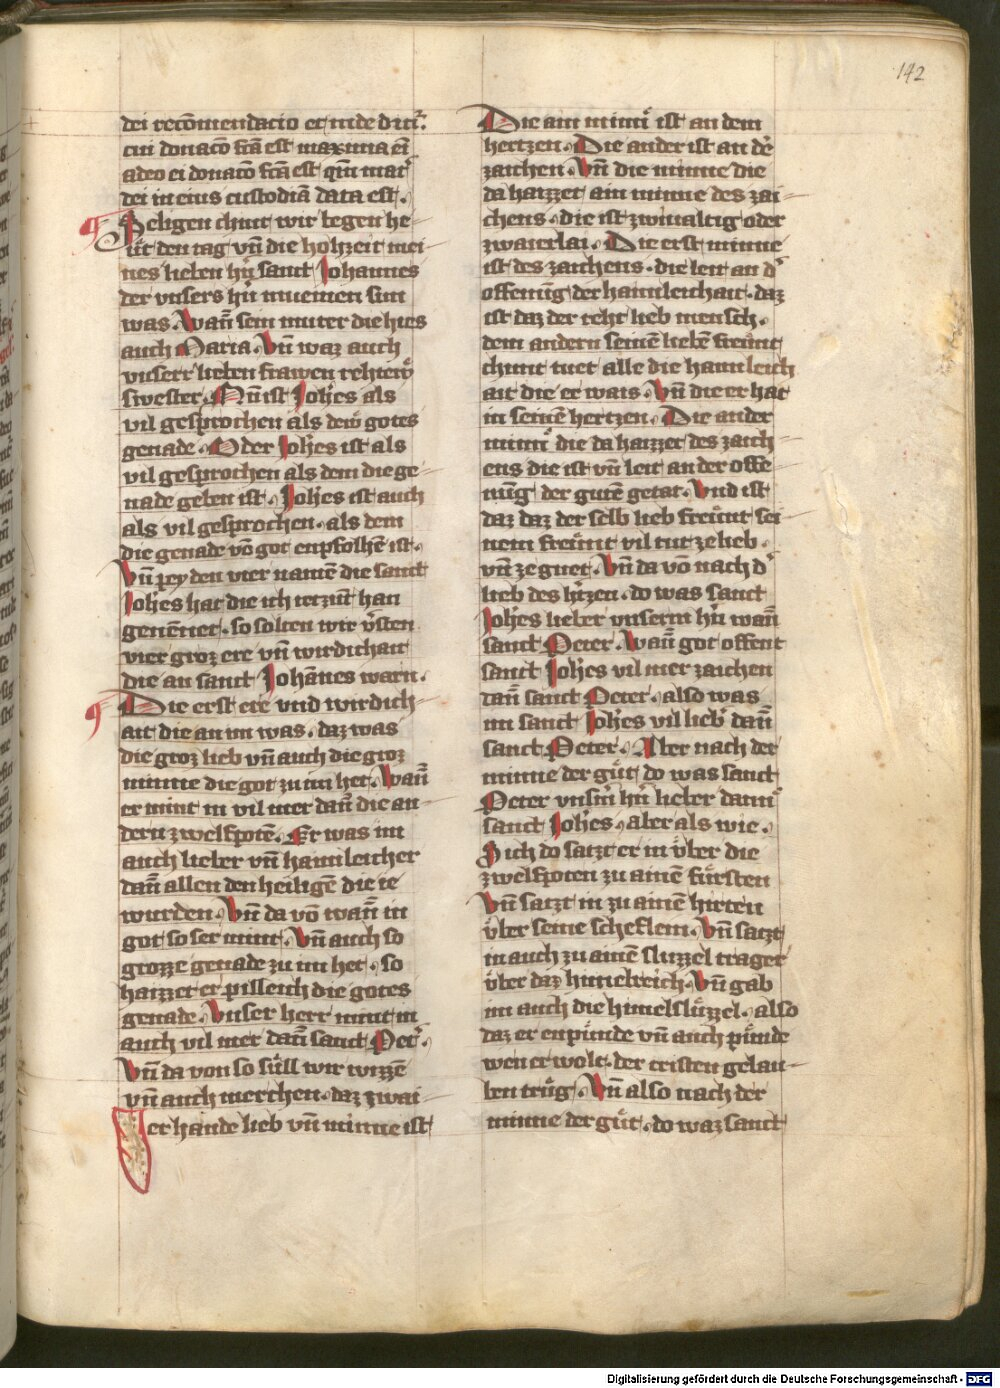 142
dei recōmendacio et inde dr̄ir̄.
cui donaco̅ fc̄a est maxima ei
adeo ei donaco̅ fc̄a est qm̄ mat᷑
dei in eius custodiā data est.
Seligen chint wir begen he-
ẅt den tag vn̄ die hohzeit mei-
nes lieben hr̄n sanct Johannes
der vnsers hr̄n muemen sun
was. Wan̄ sein muter die hies
auch Maria. Vn̄ waz auch
vnserr lieben frawen rehtew
swester. Nu ist Joh̄es als
vil gesprochen als dew gotes
genade. Oder Joh̄es ist als
vil gesprochen als dem die ge-
nade geben ist. Joh̄es ist auch
als vil gesprochen. als dem
die genade vō got enpfolhē ist.
Vn̄ pey den vier namē die sanct
Joh̄es hat die ich ietzūt han
genēnet. so solten wir v̄sten
vier groz ere vn̄ wirdichait
die an sanct Johānes warn.
Die erst ere vnd wirdich-
ait die an im was. daz was
die groz lieb vn̄ auch die groz
minne die got zu im het. Wan̄
er mint in vil mer dan̄ die an-
dern zwelfpotē. Er was im
auch lieber vn̄ haimleicher
dan̄ allen den heiligē die ie
wurden. Vn̄ da vō wan̄ in
got so ser mint. Vn̄ auch so
grozze genade zu im het. so
haizzet er pilleich die gotes
genade. Vnser herr mint in
auch vil mer dan̄ sanct Pet᷑.
Vn̄ da von so süll wir wizzē
vn̄ auch merchen. daz zwai-
er hande lieb vn̄ minne ist
Die ain minn̄ ist an dem
hertzen. Die ander ist an dē
zaichen. Vn̄ die minne die
da haizzet ain minne des zai-
chens. die ist zwiualtig oder
zwaierlai. Die erst minne
ist des zaichens. die leit an d᷑
offenūg der haimleichait. daz
ist daz der reht lieb mensch.
dem andern seinē liebē freünt
chunt tuet alle die haimleich
ait die er wais. Vn̄ die er hat
in seinē hertzen. Die ander
minn̄ die da haizzet des zaich-
ens die ist vn̄ leit an der offe-
nūg der gutē getat. Vnd ist
daz daz der selb lieb freünt sei-
nem freünt vil tut ze lieb.
vn̄ ze guet. Vn̄ da vō nach d᷑
lieb des h᷑tzen. do was sanct
Joh̄es lieber vnserm hr̄n wan̄
sanct Peter. Wan̄ got offent
sanct Joh̄es vil mer zaichen
dan̄ sanct Peter. also was
im sanct Joh̄es vil lieb᷑ dan̄
sanct Peter. Aber nach der
minne der güt. do was sanct
Peter vnserm hr̄n lieber dann̄
sanct Joh̄es. aber als wie.
Sich do satzt er in über die
zwelfpoten zu ainē fürsten
Vn̄ satzt in zu ainē hirten
über seine scheflein. Vn̄ satzt
in auch zu ainē sluzzel trager
über daz himelreich. Vn̄ gab
im auch die himelslüzzel. also
daz er enpünde vn̄ auch pünde
wen er wolt. der cristen gelau-
ben trüg. Vn̄ also nach der
minne der güt. do waz sanct
Digitalisierung gefördert durch die Deutsche Forschungsgemeinschaft - DFG